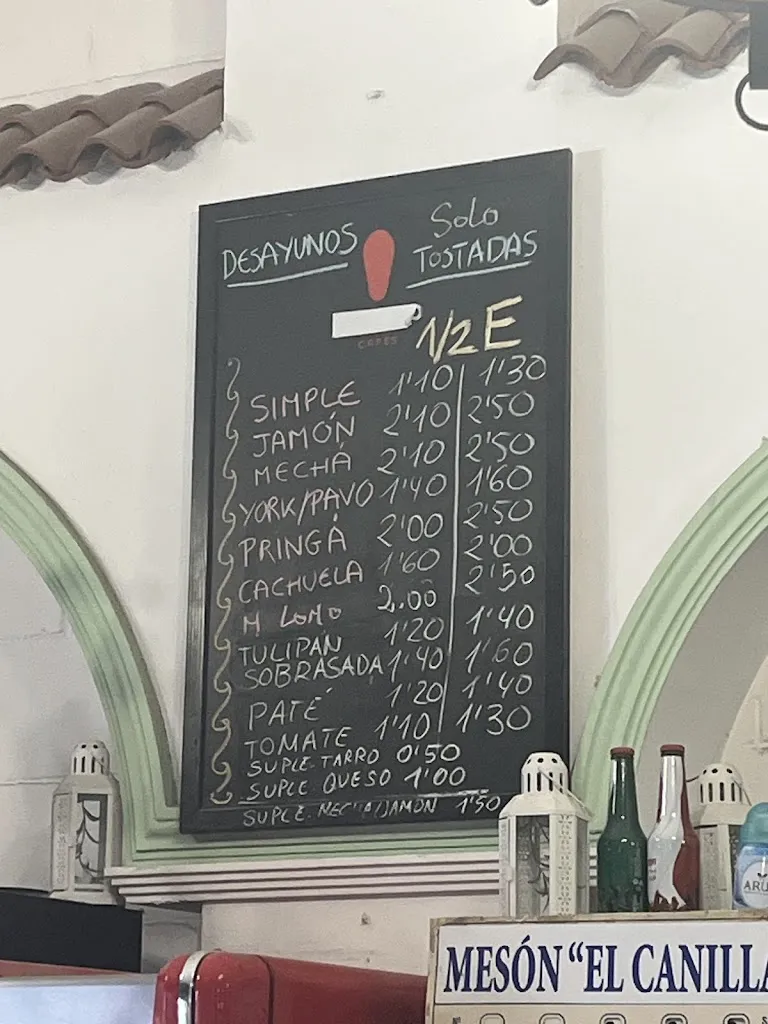 DESAYUNOS
Solo
TOSTADAS
CAFES
1/2 E
SIMPLE 1'10 1'30
JAMÓN 2'10 2'50
MECHÁ 2'10 2'50
YORK/PAVO 1'40 1'60
PRINGÁ 2'00 2'50
CACHUELA 1'60 2'00
M LOMO 2,00 2'50
TULIPAN 1'20 1'40
SOBRASADA 1'40 1'60
PATÉ 1'20 1'40
TOMATE 1'10 1'30
SUPLE. TARRO 0'50
SUPLE. QUESO 1'00
SUPLE. MECHA/JAMÓN 1'50
MESÓN "EL CANILLA